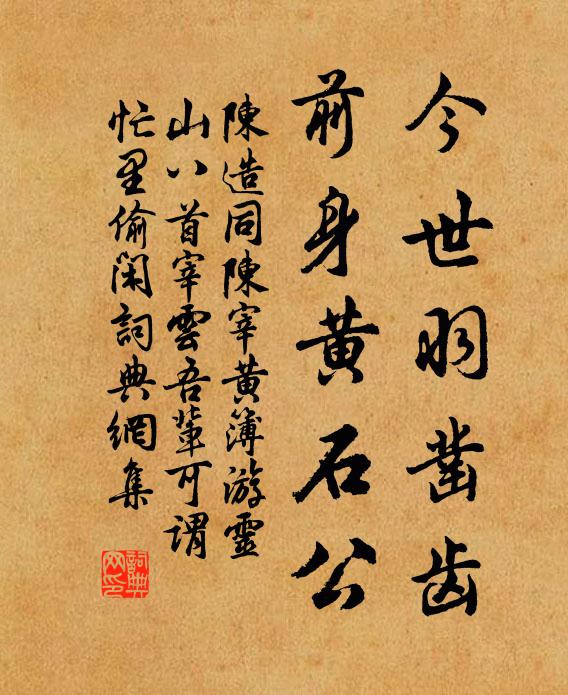 今世羽凿齿
前身黄石公
陳造同陳宰黄簿游靈
山八首宰雲吾輩可謂
忙里偷閑詞典網集
詞典
网印